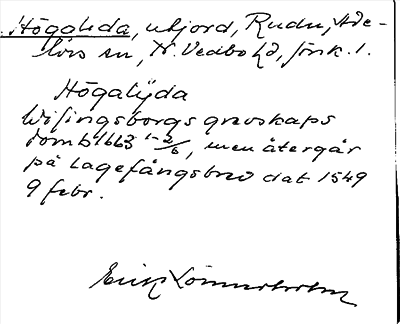 Högalida, utjord, Rudu, Ade-
lövs sn, N. Vedbo hd, Jönk. l.
Högalijda
Wisingsborgs grevskaps
domb 1663 1-2/6, men återgår
på Lagefångsbrev dat 1549
9 febr.